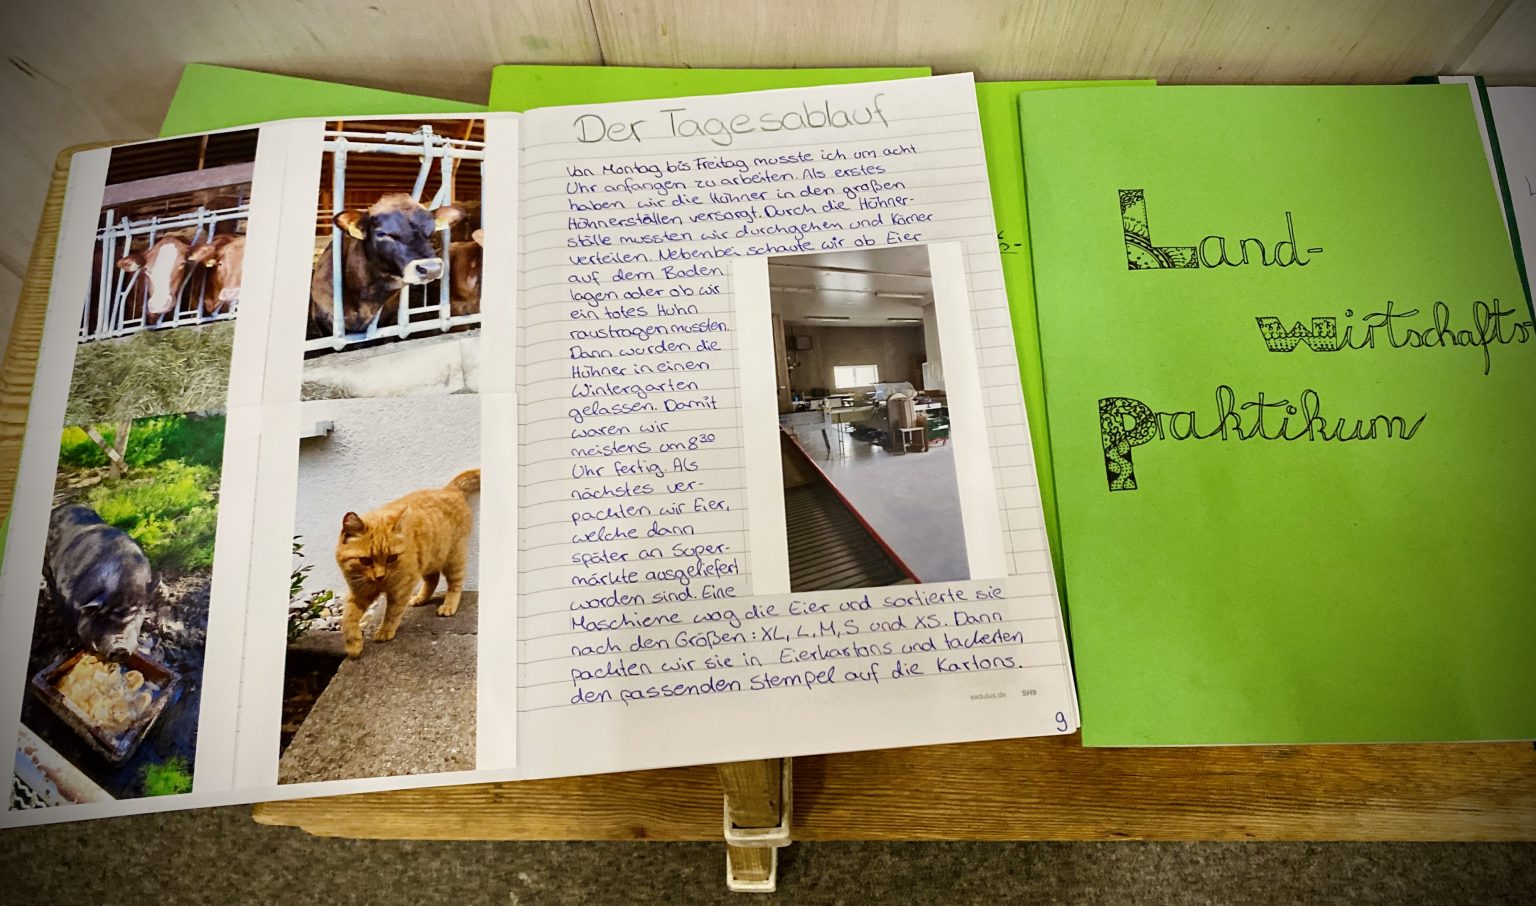 Der Tagesablauf
Von Montag bis Freitag musste ich um acht
Uhr anfangen zu arbeiten. Als erstes
haben wir die Hühner in den großen
Hühnerställen versorgt. Durch die Hühner-
ställe mussten wir durchgehen und Körner
verteilen. Nebenbei schaute wir ob Eier
auf dem Boden
lagen oder ob wir
ein totes Huhn
raustragen mussten.
Dann wurden die
Hühner in einen
Wintergarten
gelassen. Damit
waren wir
meistens um 8³⁰
Uhr fertig. Als
nächstes ver-
packten wir Eier,
welche dann
später an Super-
märkte ausgeliefert
worden sind. Eine
Maschiene wog die Eier und sortierte sie
nach den Größen: XL, L, M, S und XS. Dann
packten wir sie in Eierkartons und tackerten
den passenden Stempel auf die Kartons.
sedulus.de SH9
9
Land-
wirtschafts
Praktikum